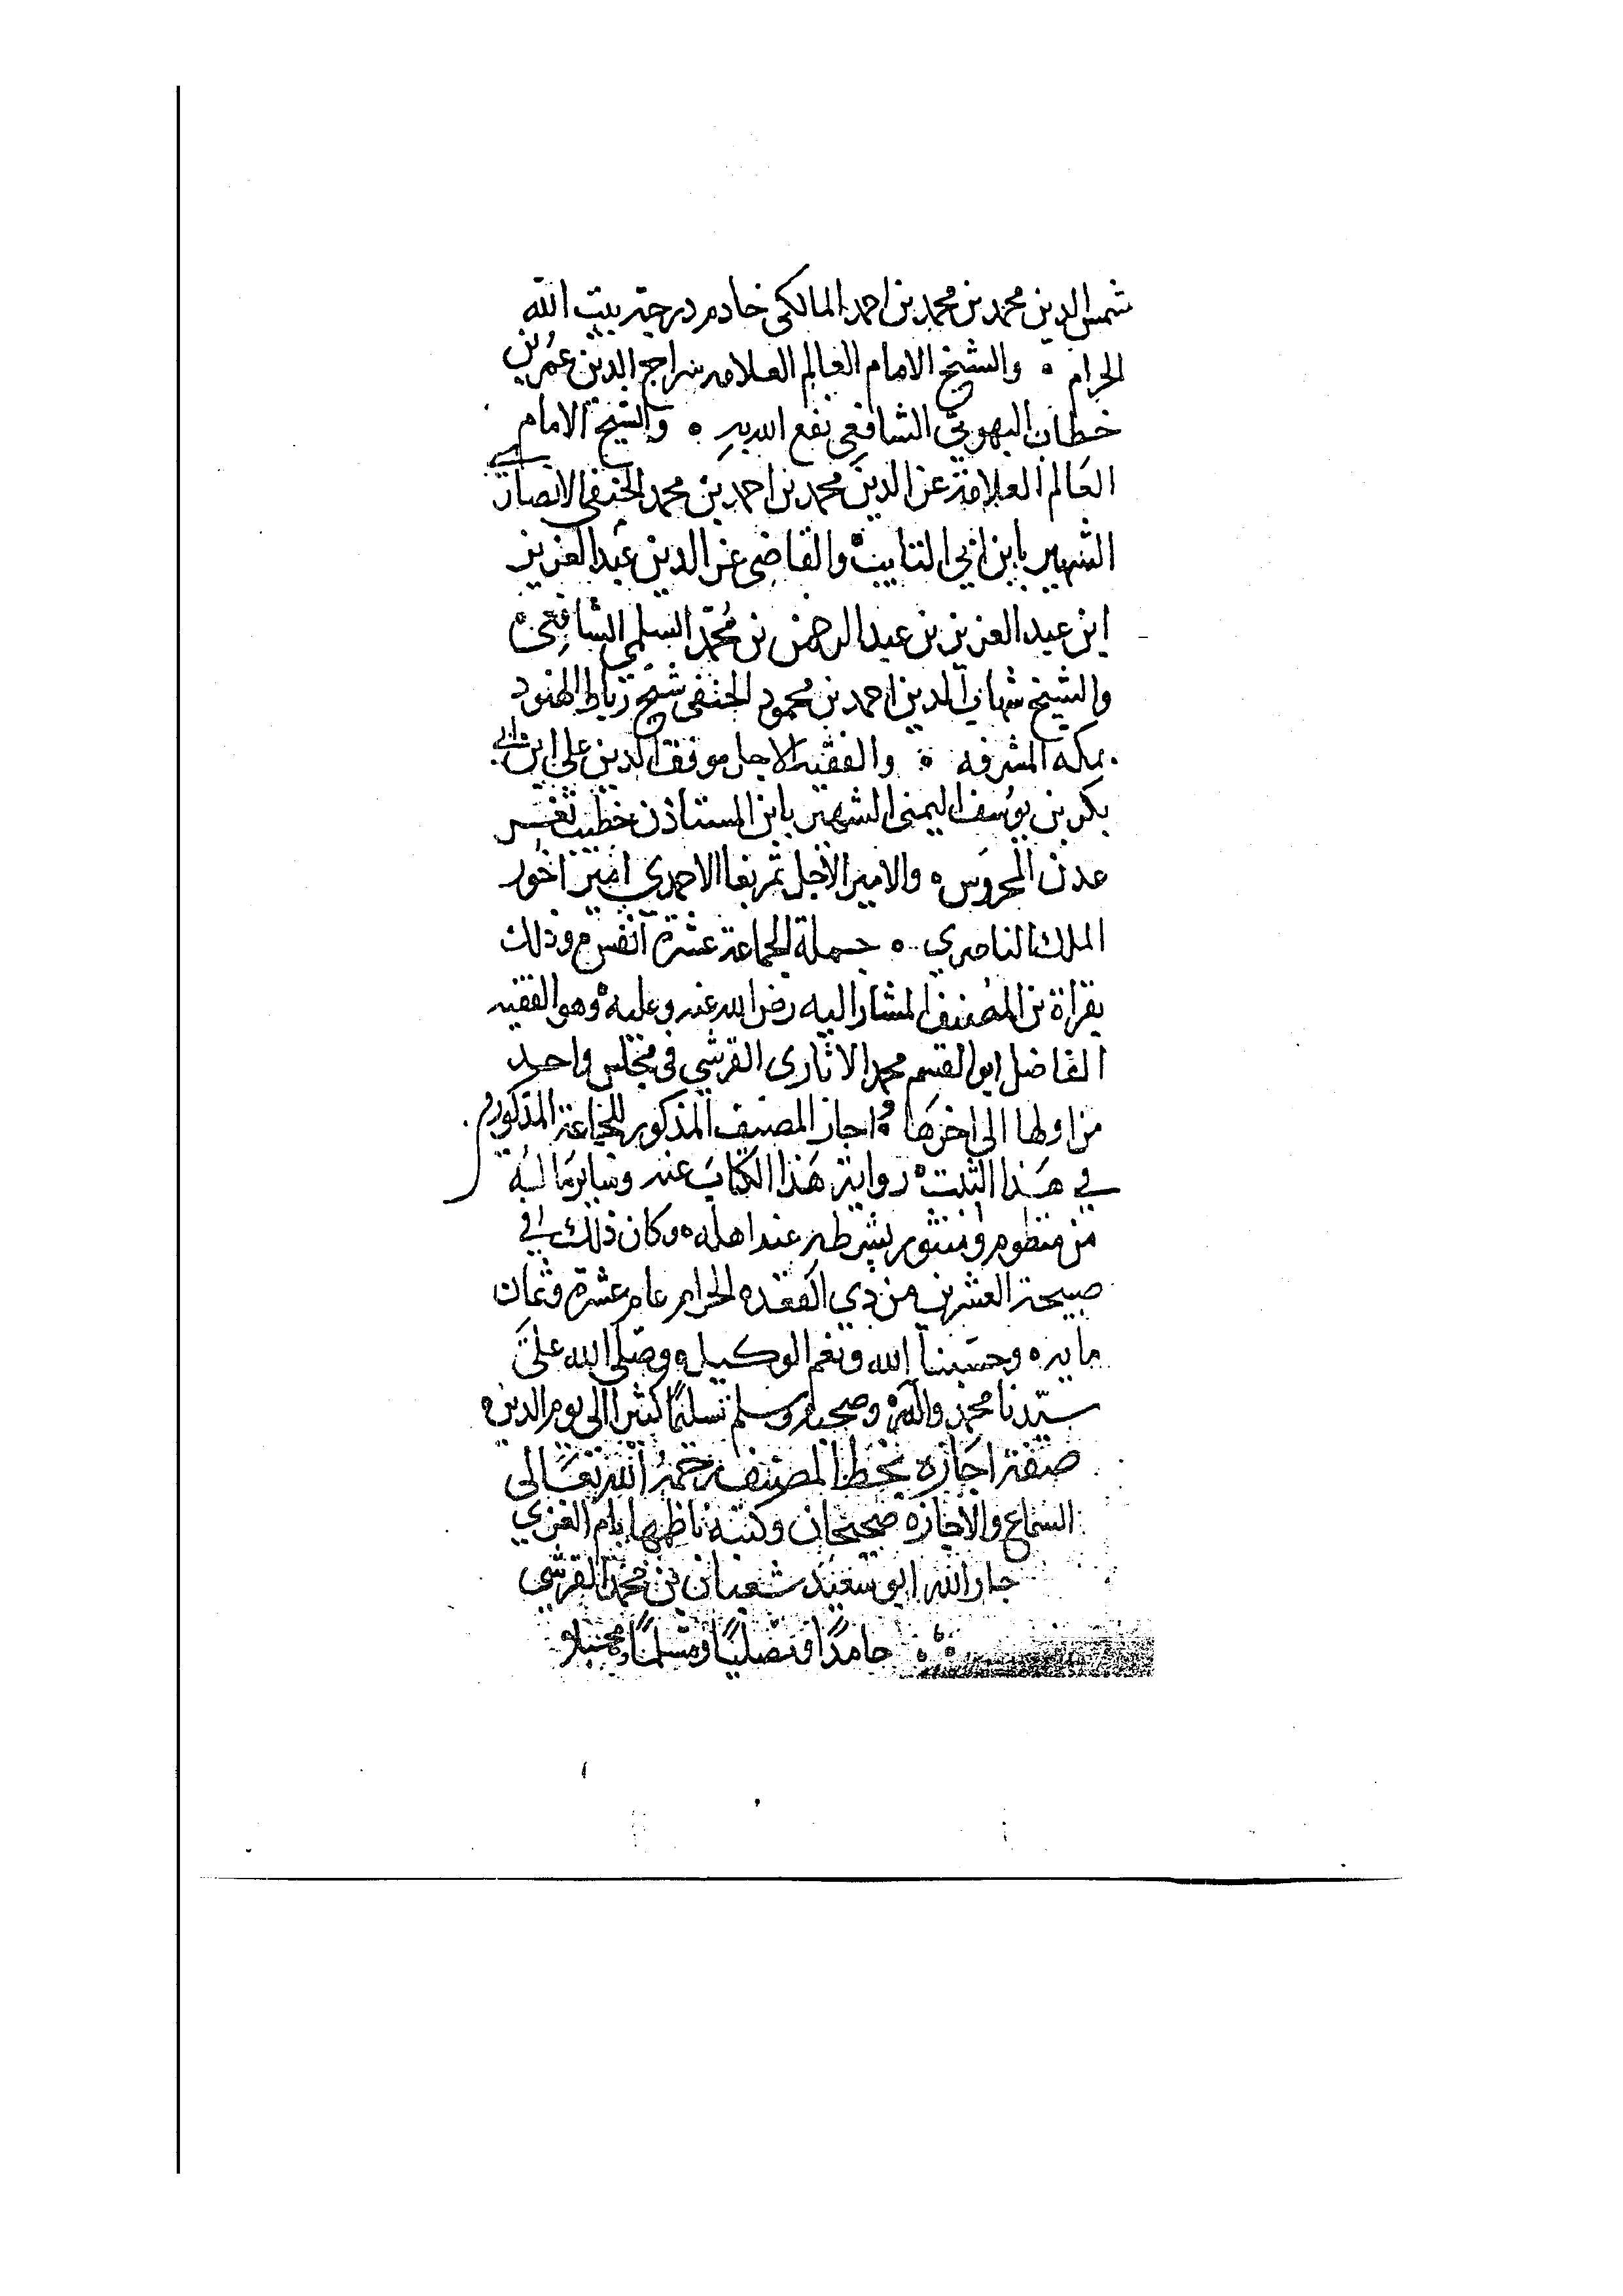 شمس الدين محمد بن محمد بن احمد المالكي خادم درجة بيت الله
الحرام ٥ والشيخ الامام العالم العلامه سراج الدين عمر بن
خطاب البهوتي الشافعي نفع الله به ٥ والشيخ الامام
العالم العلامة عز الدين محمد بن احمد بن محمد الحنفي الانصاري
الشهير بابن ابي التائب ٥ والقاضي عز الدين عبد العزيز
ابن عبد العزيز بن عبد الرحمن بن محمد السلمي الشافعي ٥
والشيخ شهاب الدين احمد بن محمود الحنفي شيخ رباط الهنود
بمكه المشرفه ٥ والفقيه الاجل موفق الدين علي ابن ابي
بكر بن يوسف اليمني الشهير بابن المستاذن خطيب ثغر
عدن المحروس ٥ والامير الاجل تمربغا الاحمدي امير اخور
الملك الناصري ٥ جملة الجماعة عشرة انفس م وذلك
بقراة بن المصنف المشار اليه رضي الله عنه وعليه ٥ وهو الفقيه
الفاضل ابو القسم محمد الاثاري القرشي في مجلس واحد
من اولها الى اخرها ٥ اجاز المصنف المذكور للجماعة المذكورين
في هذا الثبت ٥ رواية هذا الكتاب عنه وساير ما له
من منظوم ومنثور بشرطه عند اهله ٥ وكان ذلك في
صبيحة العشرين من ذي القعده الحرام عام عشرة وثمان
مايه ٥ وحسبنا الله ونعم الوكيل ٥ وصلى الله على
سيدنا محمد واله ٥ وصحبه وسلم تسليمًا كثيرا الى يوم الدين ٥
صفة اجازه بخط المصنف رحمه الله تعالى
السماع والاجازه صحيحان وكتبه ناظمها
جار الله ابو سعيد شعبان بن محمد القرشي
حامدًا ومصليًا ومسلمًا ومحسبلا